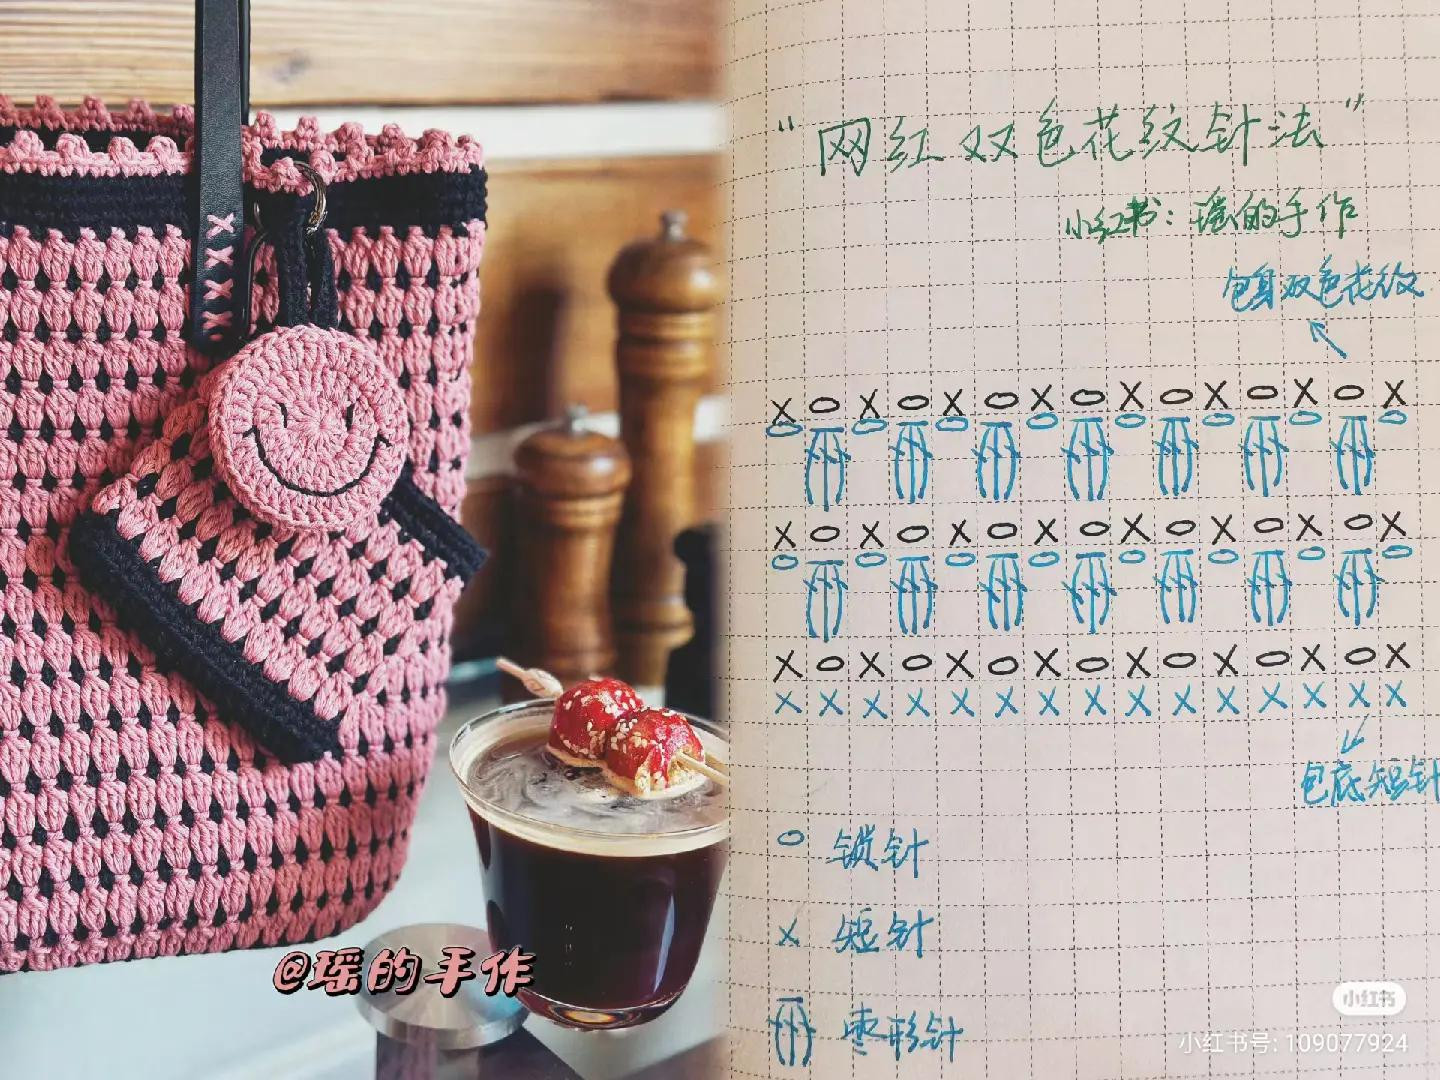 “网红双色花纹针法”
小红书：瑶的手作
包身双色花纹
包底短针
锁针
短针
枣形针
@瑶的手作
小红书
小红书号: 109077924